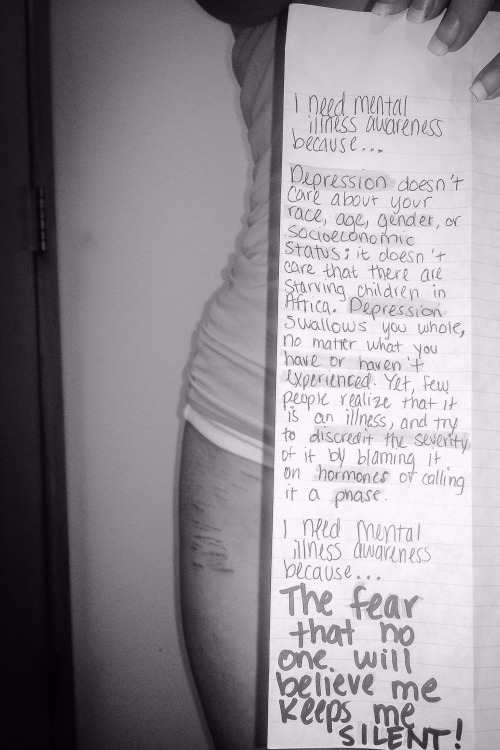 I need mental
illness awareness
because...
Depression doesn't
care about your
race, age, gender, or
socioeconomic
status; it doesn't
care that there are
starving children in
Africa. Depression
swallows you whole,
no matter what you
have or haven't
experienced. Yet, few
people realize that it
is an illness, and try
to discredit the severity
of it by blaming it
on hormones or calling
it a phase.
I need mental
illness awareness
because...
The fear
that no
one will
believe me
keeps me
SILENT!